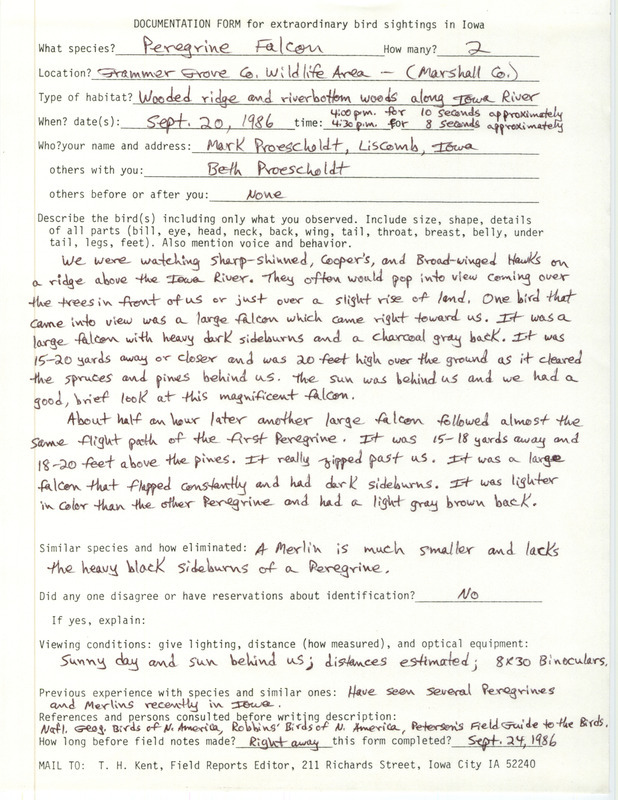 DOCUMENTATION FORM for extraordinary bird sightings in Iowa
What species? Peregrine Falcon How many? 2
Location? Grammer Grove Co. Wildlife Area - (Marshall Co.)
Type of habitat? Wooded ridge and riverbottom woods along Iowa River
When? date(s): Sept. 20, 1986 time: 4:00 p.m. for 10 seconds approximately
4:30 p.m. for 8 seconds approximately
Who? your name and address: Mark Proescholdt, Liscomb, Iowa
others with you: Beth Proescholdt
others before or after you: None
Describe the bird(s) including only what you observed. Include size, shape, details
of all parts (bill, eye, head, neck, back, wing, tail, throat, breast, belly, under
tail, legs, feet). Also mention voice and behavior.
We were watching Sharp-shinned, Cooper's, and Broad-winged Hawks on
a ridge above the Iowa River. They often would pop into view coming over
the trees in front of us or just over a slight rise of land. One bird that
came into view was a large falcon which came right toward us. It was a
large falcon with heavy dark sideburns and a charcoal gray back. It was
15-20 yards away or closer and was 20 feet high over the ground as it cleared
the spruces and pines behind us. The sun was behind us and we had a
good, brief look at this magnificent falcon.
About half an hour later another large falcon followed almost the
same flight path of the first Peregrine. It was 15-18 yards away and
18-20 feet above the pines. It really zipped past us. It was a large
falcon that flapped constantly and had dark sideburns. It was lighter
in color than the other Peregrine and had a light gray brown back.
Similar species and how eliminated: A Merlin is much smaller and lacks
the heavy black sideburns of a Peregrine.
Did any one disagree or have reservations about identification? No
If yes, explain:
Viewing conditions: give lighting, distance (how measured), and optical equipment:
Sunny day and sun behind us; distances estimated; 8X30 Binoculars.
Previous experience with species and similar ones: Have seen several Peregrines
and Merlins recently in Iowa.
References and persons consulted before writing description:
Natl. Geog. Birds of N. America, Robbins' Birds of N. America, Peterson's Field Guide to the Birds.
How long before field notes made? Right away this form completed? Sept. 24, 1986
MAIL TO: T. H. Kent, Field Reports Editor, 211 Richards Street, Iowa City IA 52240